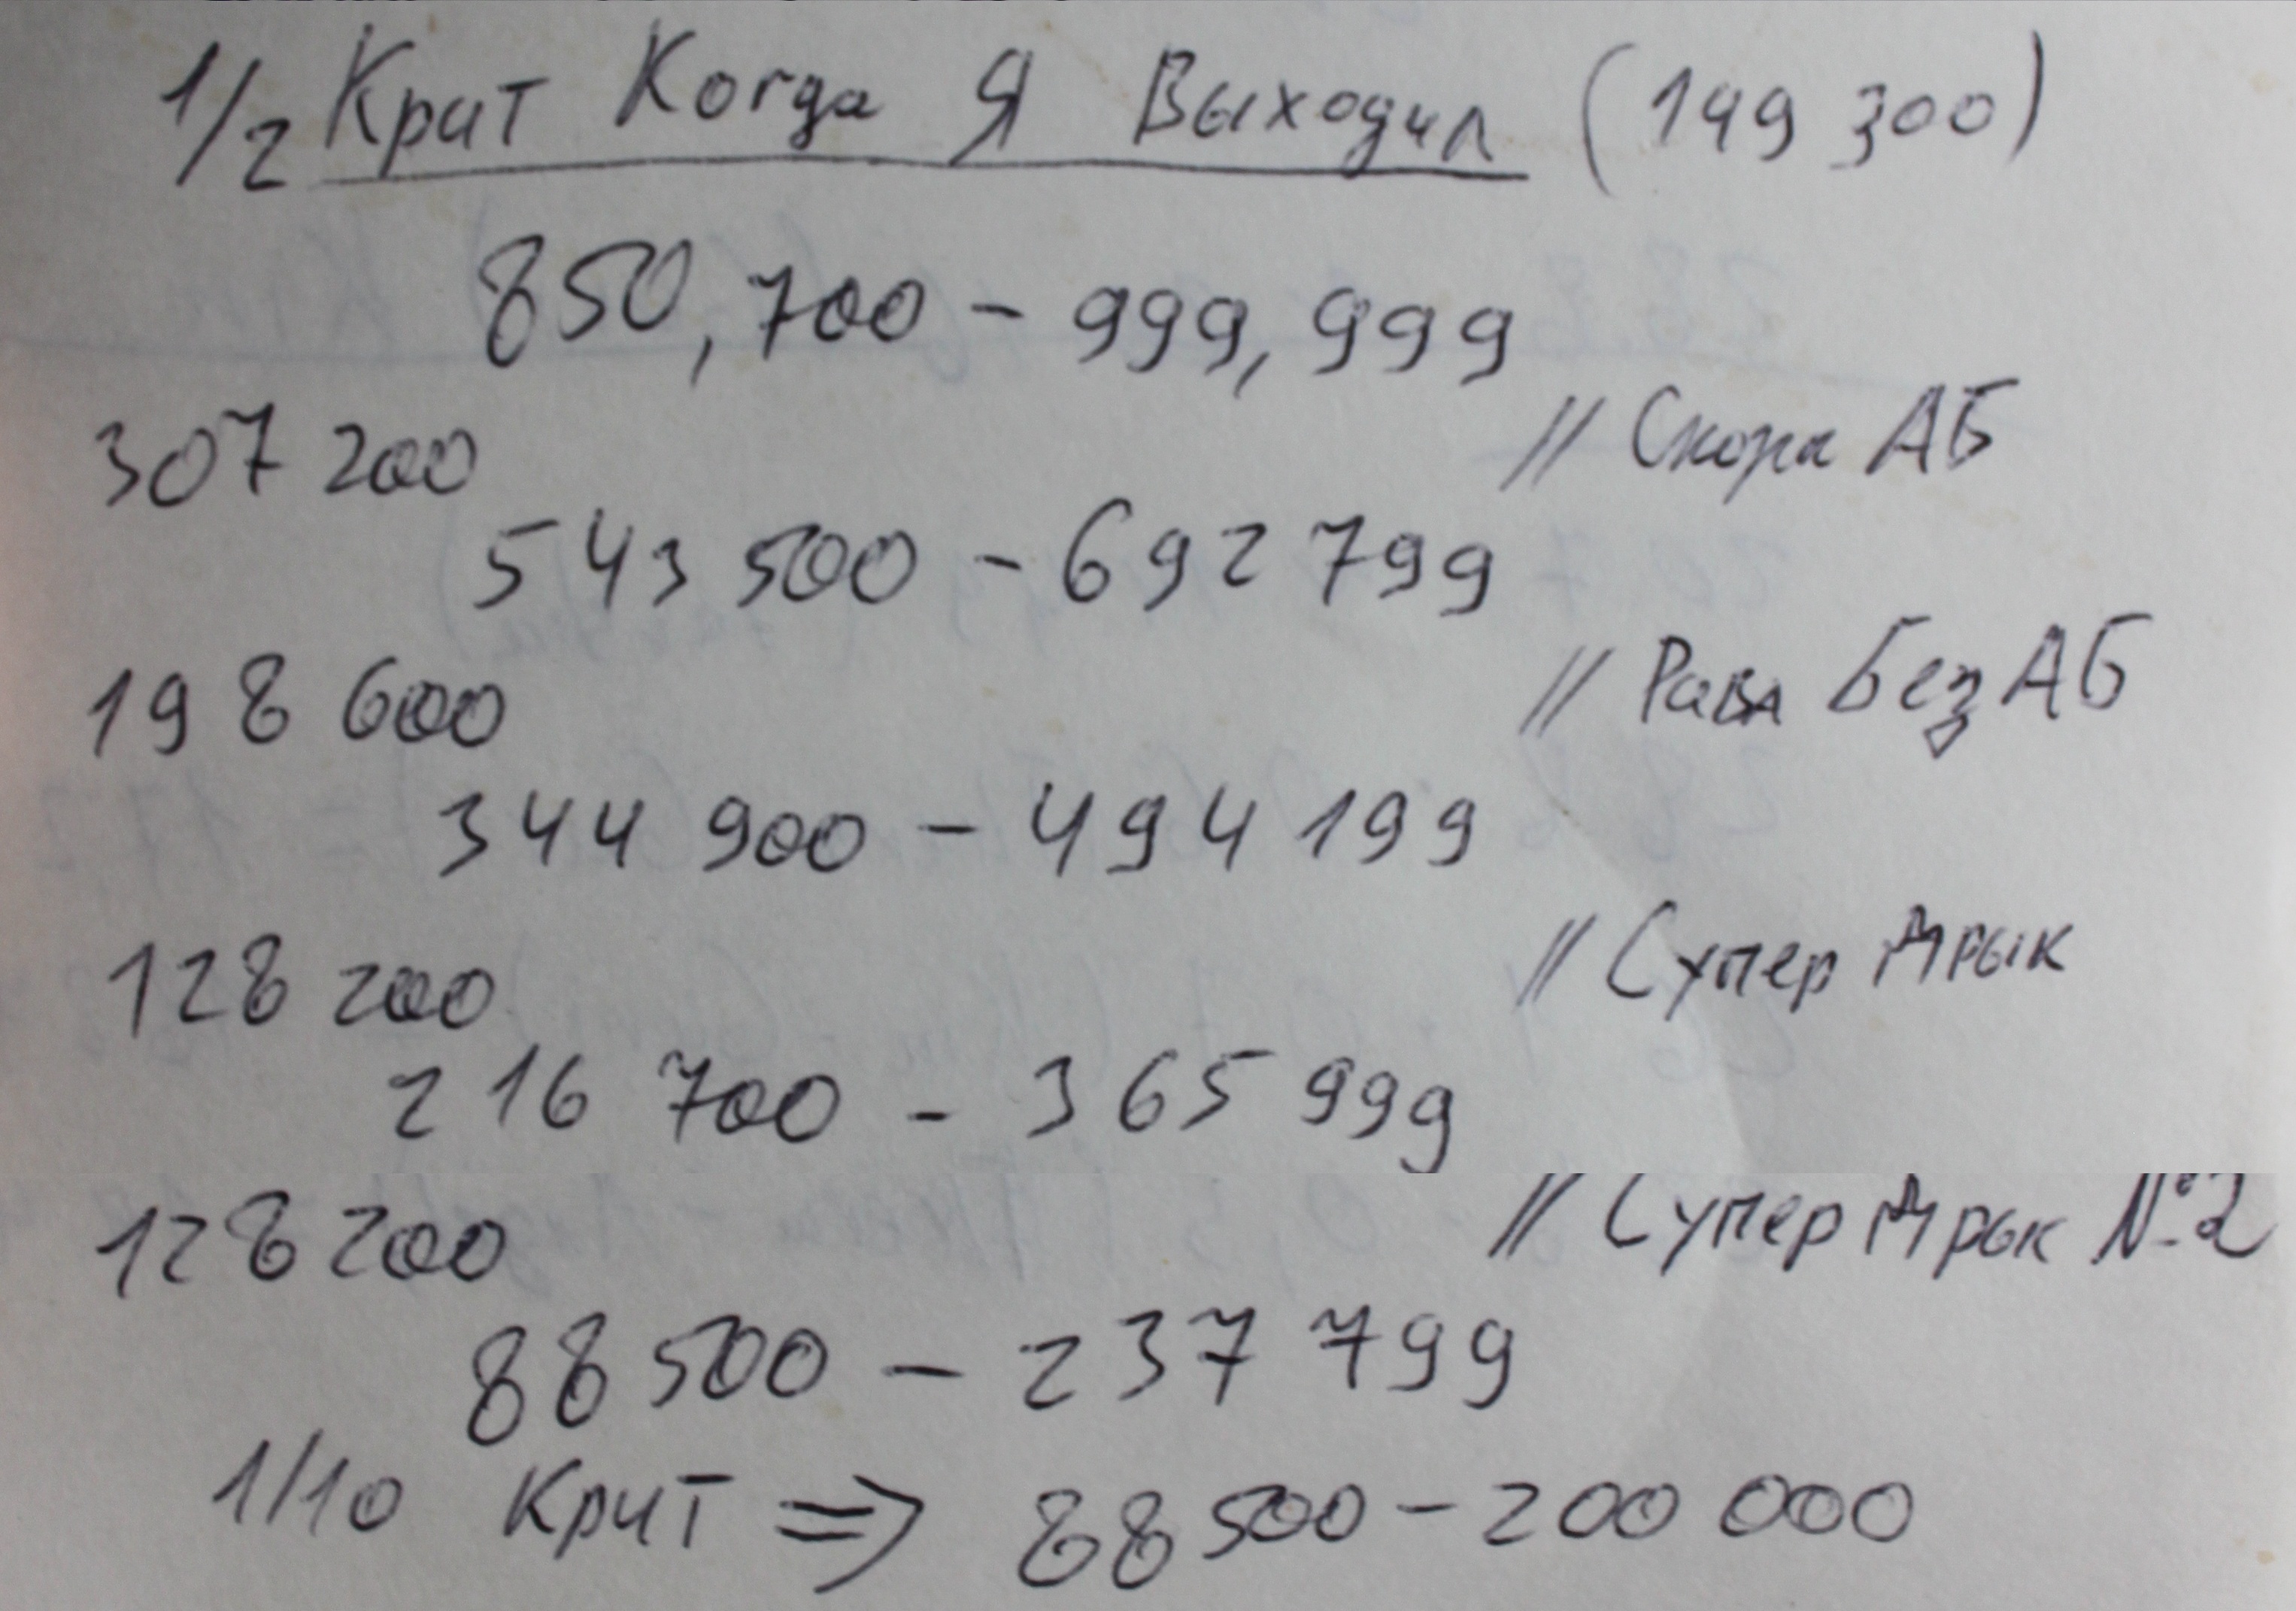 1/2 Крит Когда Я Выходил (149 300)
850,700 - 999,999
307 200 // Скора АБ
543 500 - 692 799
198 600 // Рава Без АБ
344 900 - 494 199
128 200 // Супер Дрык
216 700 - 365 999
128 200 // Супер Дрык №2
88 500 - 237 799
1/10 Крит => 88 500 - 200 000